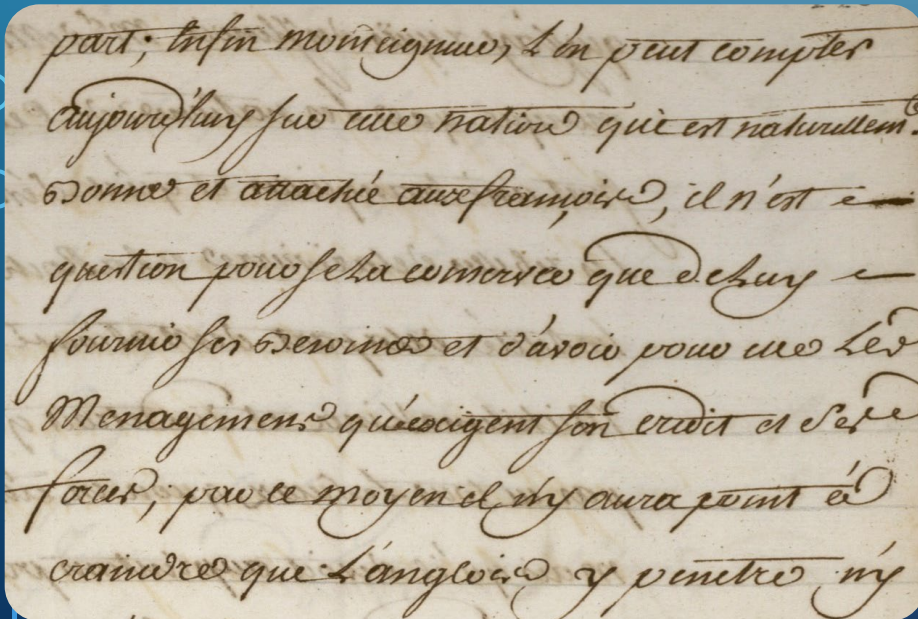 part; Enfin monseigneur, L'on peut compter
aujourd'huy sur une nation qui est naturellem.t
bonne et attachée aux françois, il n'est
question pour se la conserver que de Luy
fournir ses besoins et d'avoir pour elle Les
Menagemens qu'exigent son credit et ses
forces, par ce moyen il n'y aura point à
craindre que L'anglois y penetre n'y